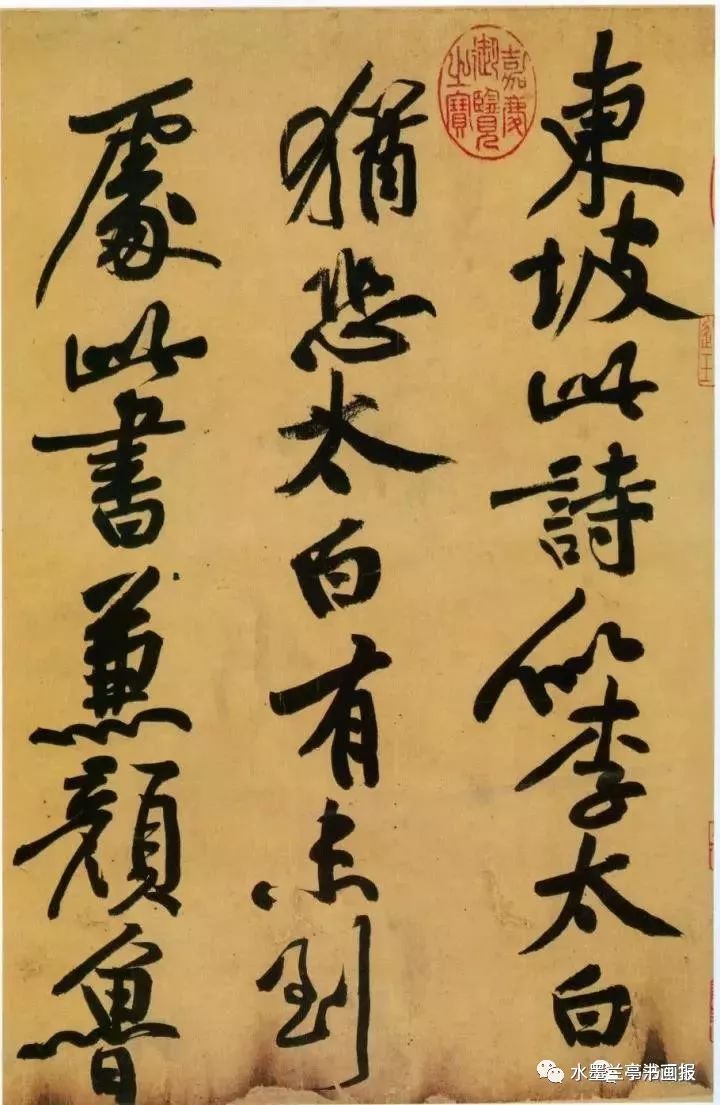 東坡此詩似李太白
猶恐太白有未到
處此書兼顏魯
嘉慶
御覽
之寶
水墨兰亭书画报